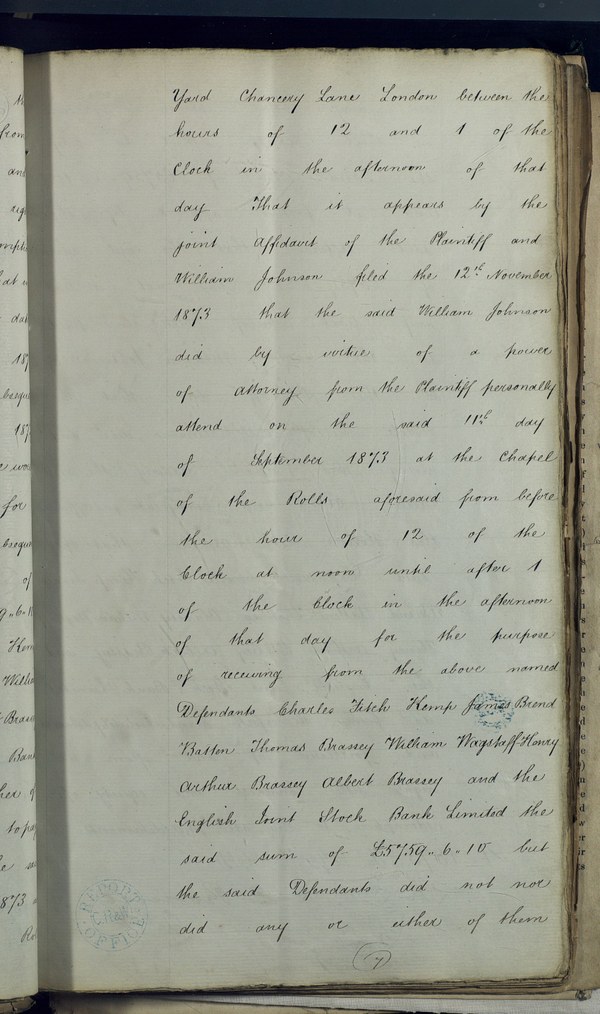 Yard Chancery Lane London between the
hours of 12 and 1 of the
Clock in the afternoon of that
day That it appears by the
joint Affidavit of the Plaintiff and
William Johnson filed the 12th November
1873 that the said William Johnson
did by virtue of a power
of attorney from the Plaintiff personally
attend on the said 11th day
of September 1873 at the Chapel
of the Rolls aforesaid from before
the hour of 12 of the
Clock at noon until after 1
of the Clock in the afternoon
of that day for the purpose
of receiving from the above named
Defendants Charles Fitch Kemp James Brend
Batten Thomas Brassey William Wagstaff Henry
Arthur Brassey Albert Brassey and the
English Joint Stock Bank Limited the
said sum of £5759.. 6.. 10 but
the said Defendants did not nor
did any or either of them
REPORT OFFICE